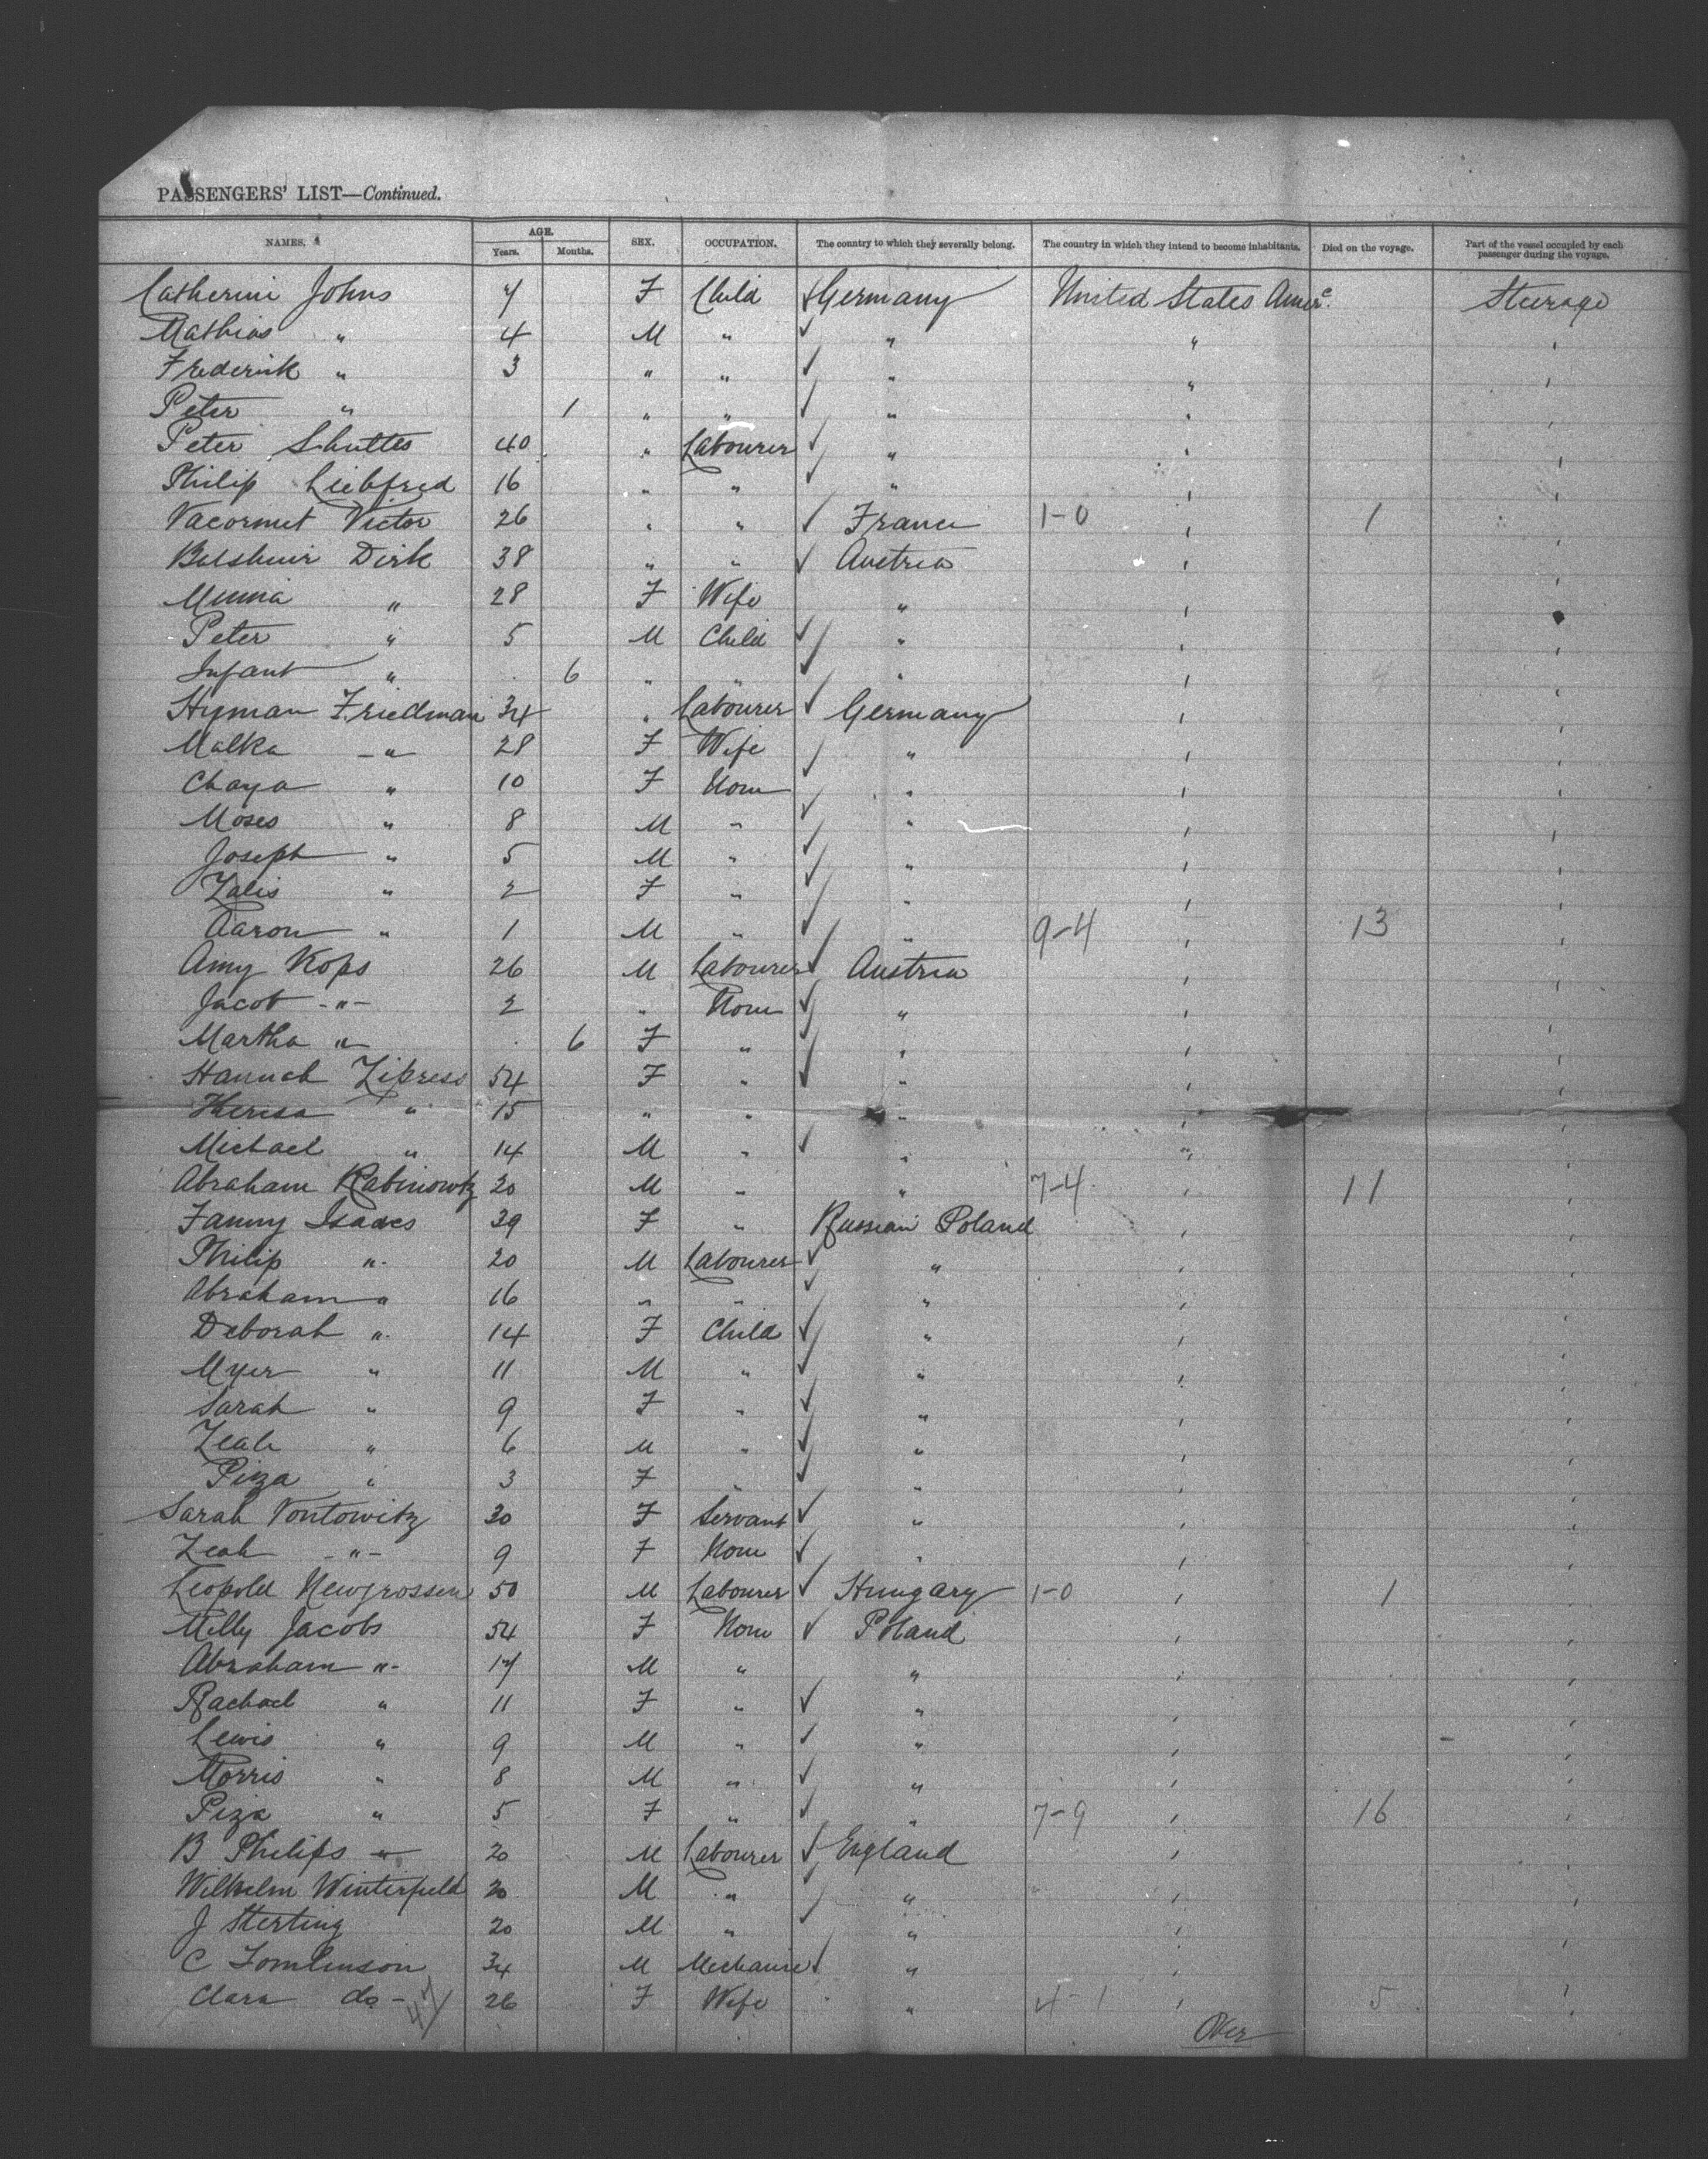 PASSENGERS' LIST—Continued.
NAMES. AGE. Years. Months. SEX. OCCUPATION. The country to which they severally belong. The country in which they intend to become inhabitants. Died on the voyage. Part of the vessel occupied by each passenger during the voyage.
Catherini Johns 7 F Child Germany United States Amerc. Steerage
Mathias " 4 M " " " "
Frederick " 3 " " " " "
Peter " 1 " " " " "
Peter Shuttes 40 " Labourer " " "
Philip Liebfred 16 " " " " "
Vacormut Victor 26 " " France 1-0 " 1 "
Dirk 38 " " Austria " "
Minna " 28 F Wife " " "
Peter " 5 M Child " " "
Infant " 6 " " " " "
Hyman Friedman 34 " Labourer Germany " "
Malka " 28 F Wife " " "
Chaya " 10 F None " " "
Moses " 8 M " " " "
Joseph " 5 M " " " "
Zalis " 2 F " " " "
Aaron " 1 M " " 9-4 " 13 "
Amy Kops 26 M Labourer Austria " "
Jacob -"- 2 " None " " "
Martha " 6 F " " " "
Hannah Zipress 54 F " " " "
Theresa " 15 " " " " "
Michael " 14 M " " " "
Abraham Rabinowitz 20 M " " 7-4 " 11 "
Fanny Isaacs 39 F " Russian Poland " "
Philip " 20 M Labourer " " "
Abraham " 16 " " " " "
Deborah " 14 F Child " " "
Myer " 11 M " " " "
Sarah " 9 F " " " "
Leah " 6 M " " " "
Piza " 3 F " " " "
Sarah Vontowitz 30 F Servant " " "
Leah -"- 9 F None " " "
Leopold Newgrossen 50 M Labourer Hungary 1-0 " 1 "
Milly Jacobs 54 F None Poland " "
Abraham " 17 M " " " "
Rachael " 11 F " " " "
Lewis " 9 M " " " "
Morris " 8 M " " " "
Piza " 5 F " " 7-9 " 16 "
B Philips " 20 M Labourer England " "
Wilhelm Winterfield 20 M " " " "
J Sterting 20 M " " " "
C Tomlinson 34 M Mechanic " " "
Clara do - 26 F Wife " 4-1 " 5 "
47
Over